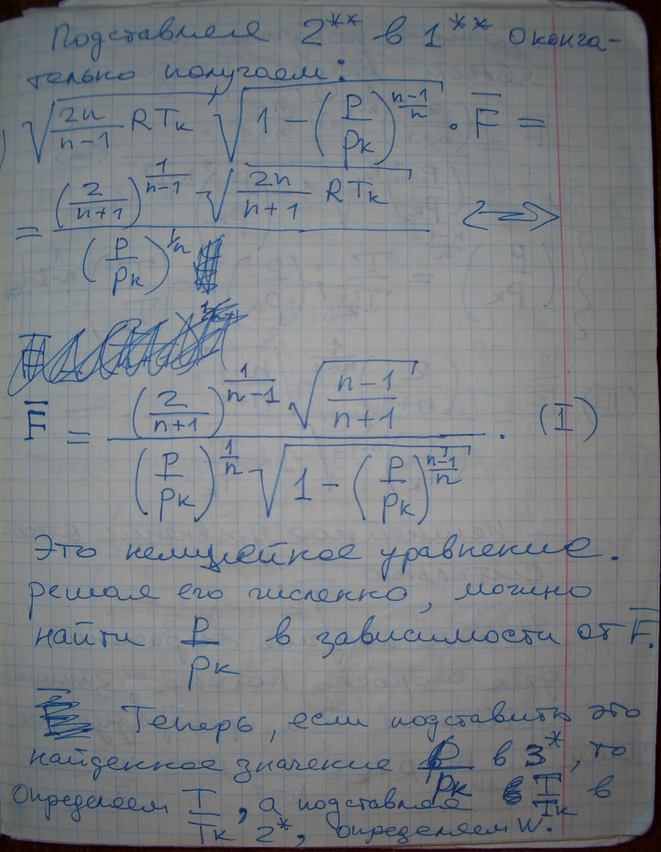 Подставляя 2** в 1** оконча-
тельно получаем:
√(2n/(n-1) RTк) √(1-(P/Pк)^((n-1)/n)) · F̅ =
= ((2/(n+1))^(1/(n-1)) √(2n/(n+1) RTк)) / (P/Pк)^(1/n) <=>
F̅ = ((2/(n+1))^(1/(n-1)) √((n-1)/(n+1))) / ((P/Pк)^(1/n) √(1-(P/Pк)^((n-1)/n))). (I)
Это нелинейное уравнение.
решая его численно, можно
найти P/Pк в зависимости от F̅.
Теперь, если подставить это
найденное значение P/Pк в 3*, то
определяем T/Tк, а подставляя T/Tк в
2*, определяем W.